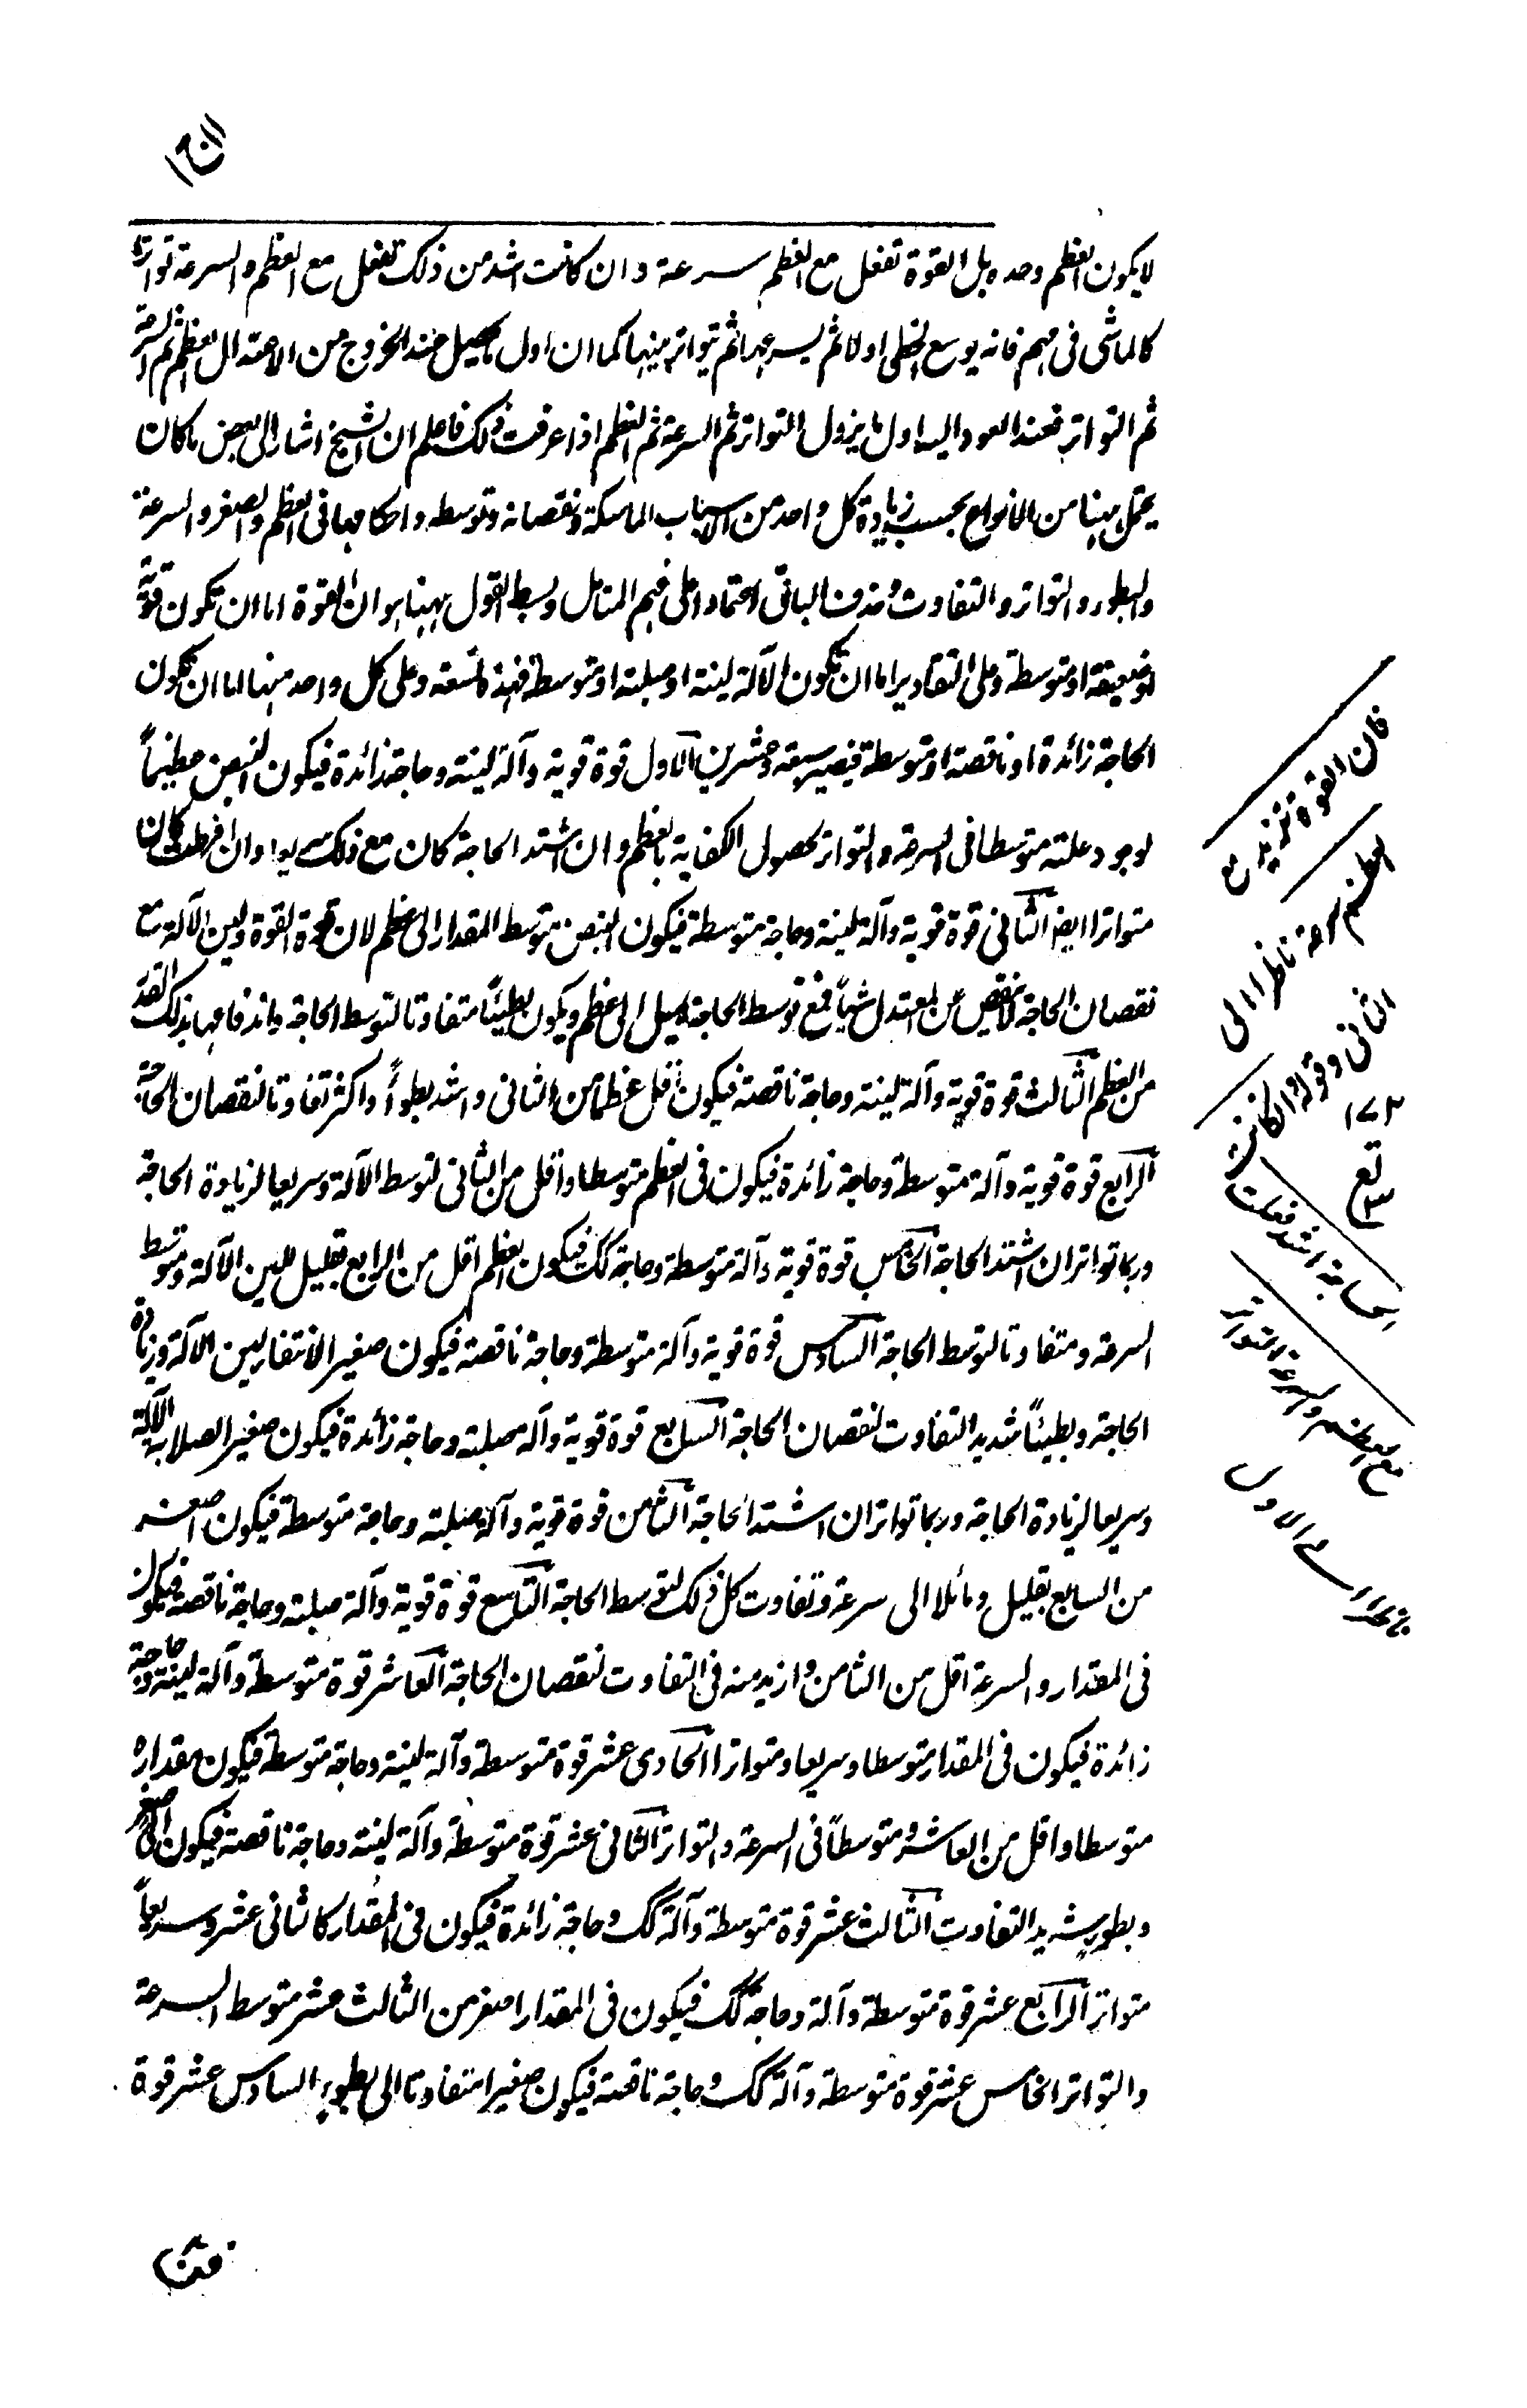 لا يكون العظم وحده بل القوة تفعل مع العظم سرعة وان كانت اشد من ذلك تفعل مع العظم والسرعة تواترا
كالماشى فى مهم فانه يوسع الخطى اولا ثم يسرعها ثم يتواتر بينها كما ان اول ما يحصل عند الخروج من الاعتدال العظم ثم السرعة
ثم التواتر فعند العود اليه اول ما يزول التواتر ثم السرعة ثم العظم اذا عرفت ذلك فاعلم ان الشيخ اشار الى بعض ما كان
يحتمل ههنا من الانواع بحسب زيادة كل واحد من الاسباب الماسكة ونقصانه وتوسطه واحكامها فى العظم والصغر والسرعة
والبطوء والتواتر والتفاوت وحذف الباقى اعتمادا على فهم المتامل وبسط القول ههنا هو ان القوة اما ان تكون قوية
او ضعيفة او متوسطة وعلى التقادير اما ان تكون الآلة لينة او صلبة او متوسطة فهذه تسعة وعلى كل واحد منها اما ان تكون
الحاجة زائدة او ناقصة او متوسطة فيصير سبعة وعشرين الاول قوة قوية وآلة لينة وحاجة زائدة فيكون النبض عظيماً
لوجود علته متوسطا فى السرعة والتواتر لحصول الكفاية بالعظم وان اشتد الحاجة كان مع ذلك سريعا وان افرطت كان
متواترا ايضا الثانى قوة قوية وآلة لينة وحاجة متوسطة فيكون النبض متوسط المقدار الى عظم لان قوة القوة ولين الآلة مع
نقصان الحاجة لا ينقص عن المعتدل شيأ فمع توسط الحاجة يميل الى عظم ويكون بطيئًا متفاوتا لتوسط الحاجة واندفاعها بذلك القدر
من العظم الثالث قوة قوية وآلة لينة وحاجة ناقصة فيكون اقل عظما من الثانى واشد بطوأً واكثر تفاوتا لنقصان الحاجة
الرابع قوة قوية وآلة متوسطة وحاجة زائدة فيكون فى العظم متوسطا واقل من الثانى لتوسط الآلة وسريعا لزيادة الحاجة
وربما تواتر ان اشتد الحاجة الخامس قوة قوية وآلة متوسطة وحاجة كك فيكون العظم اقل من الرابع بقليل للين الآلة ومتوسط
السرعة ومتفاوتا لتوسط الحاجة السادس قوة قوية وآلة متوسطة وحاجة ناقصة فيكون صغير الانتفاء لين الآلة وزيادة
الحاجة وبطيئاً شديد التفاوت لنقصان الحاجة السابع قوة قوية وآلة صلبة وحاجة زائدة فيكون صغير الصلابة الآلة
وسريعا لزيادة الحاجة وربما تواتر ان اشتد الحاجة الثامن قوة قوية وآلة صلبة وحاجة متوسطة فيكون اصغر
من السابع بقليل ومائلا الى سرعة وتفاوت كل ذلك لتوسط الحاجة التاسع قوة قوية وآلة صلبة وحاجة ناقصة فيكون
فى المقدار والسرعة اقل من الثامن وازيد منه فى التفاوت لنقصان الحاجة العاشر قوة متوسطة وآلة لينة وحاجة
زائدة فيكون فى المقدار متوسطا وسريعا ومتواترا الحادى عشر قوة متوسطة وآلة لينة وحاجة متوسطة فيكون مقداره
متوسطا واقل من العاشر ومتوسطاً فى السرعة والتواتر الثانى عشر قوة متوسطة وآلة لينة وحاجة ناقصة فيكون الى صغر
وبطوء شديد التفاوت الثالث عشر قوة متوسطة وآلة كك وحاجة زائدة فيكون فى المقدار كالثانى عشر وسريعاً
متواتر الرابع عشر قوة متوسطة وآلة وحاجة كك فيكون فى المقدار اصغر من الثالث عشر متوسط السرعة
والتواتر الخامس عشر قوة متوسطة وآلة كك وحاجة ناقصة فيكون صغيرا متفاوتا الى بطوء السادس عشر قوة
فان القوة تزيد مع
العظم سرعة ناظر الى
الثانى وقوله وان كانت
الحاجة اشد فعلت
مع العظم والسرعة التواتر
ناظر الى الاول
١٧٢